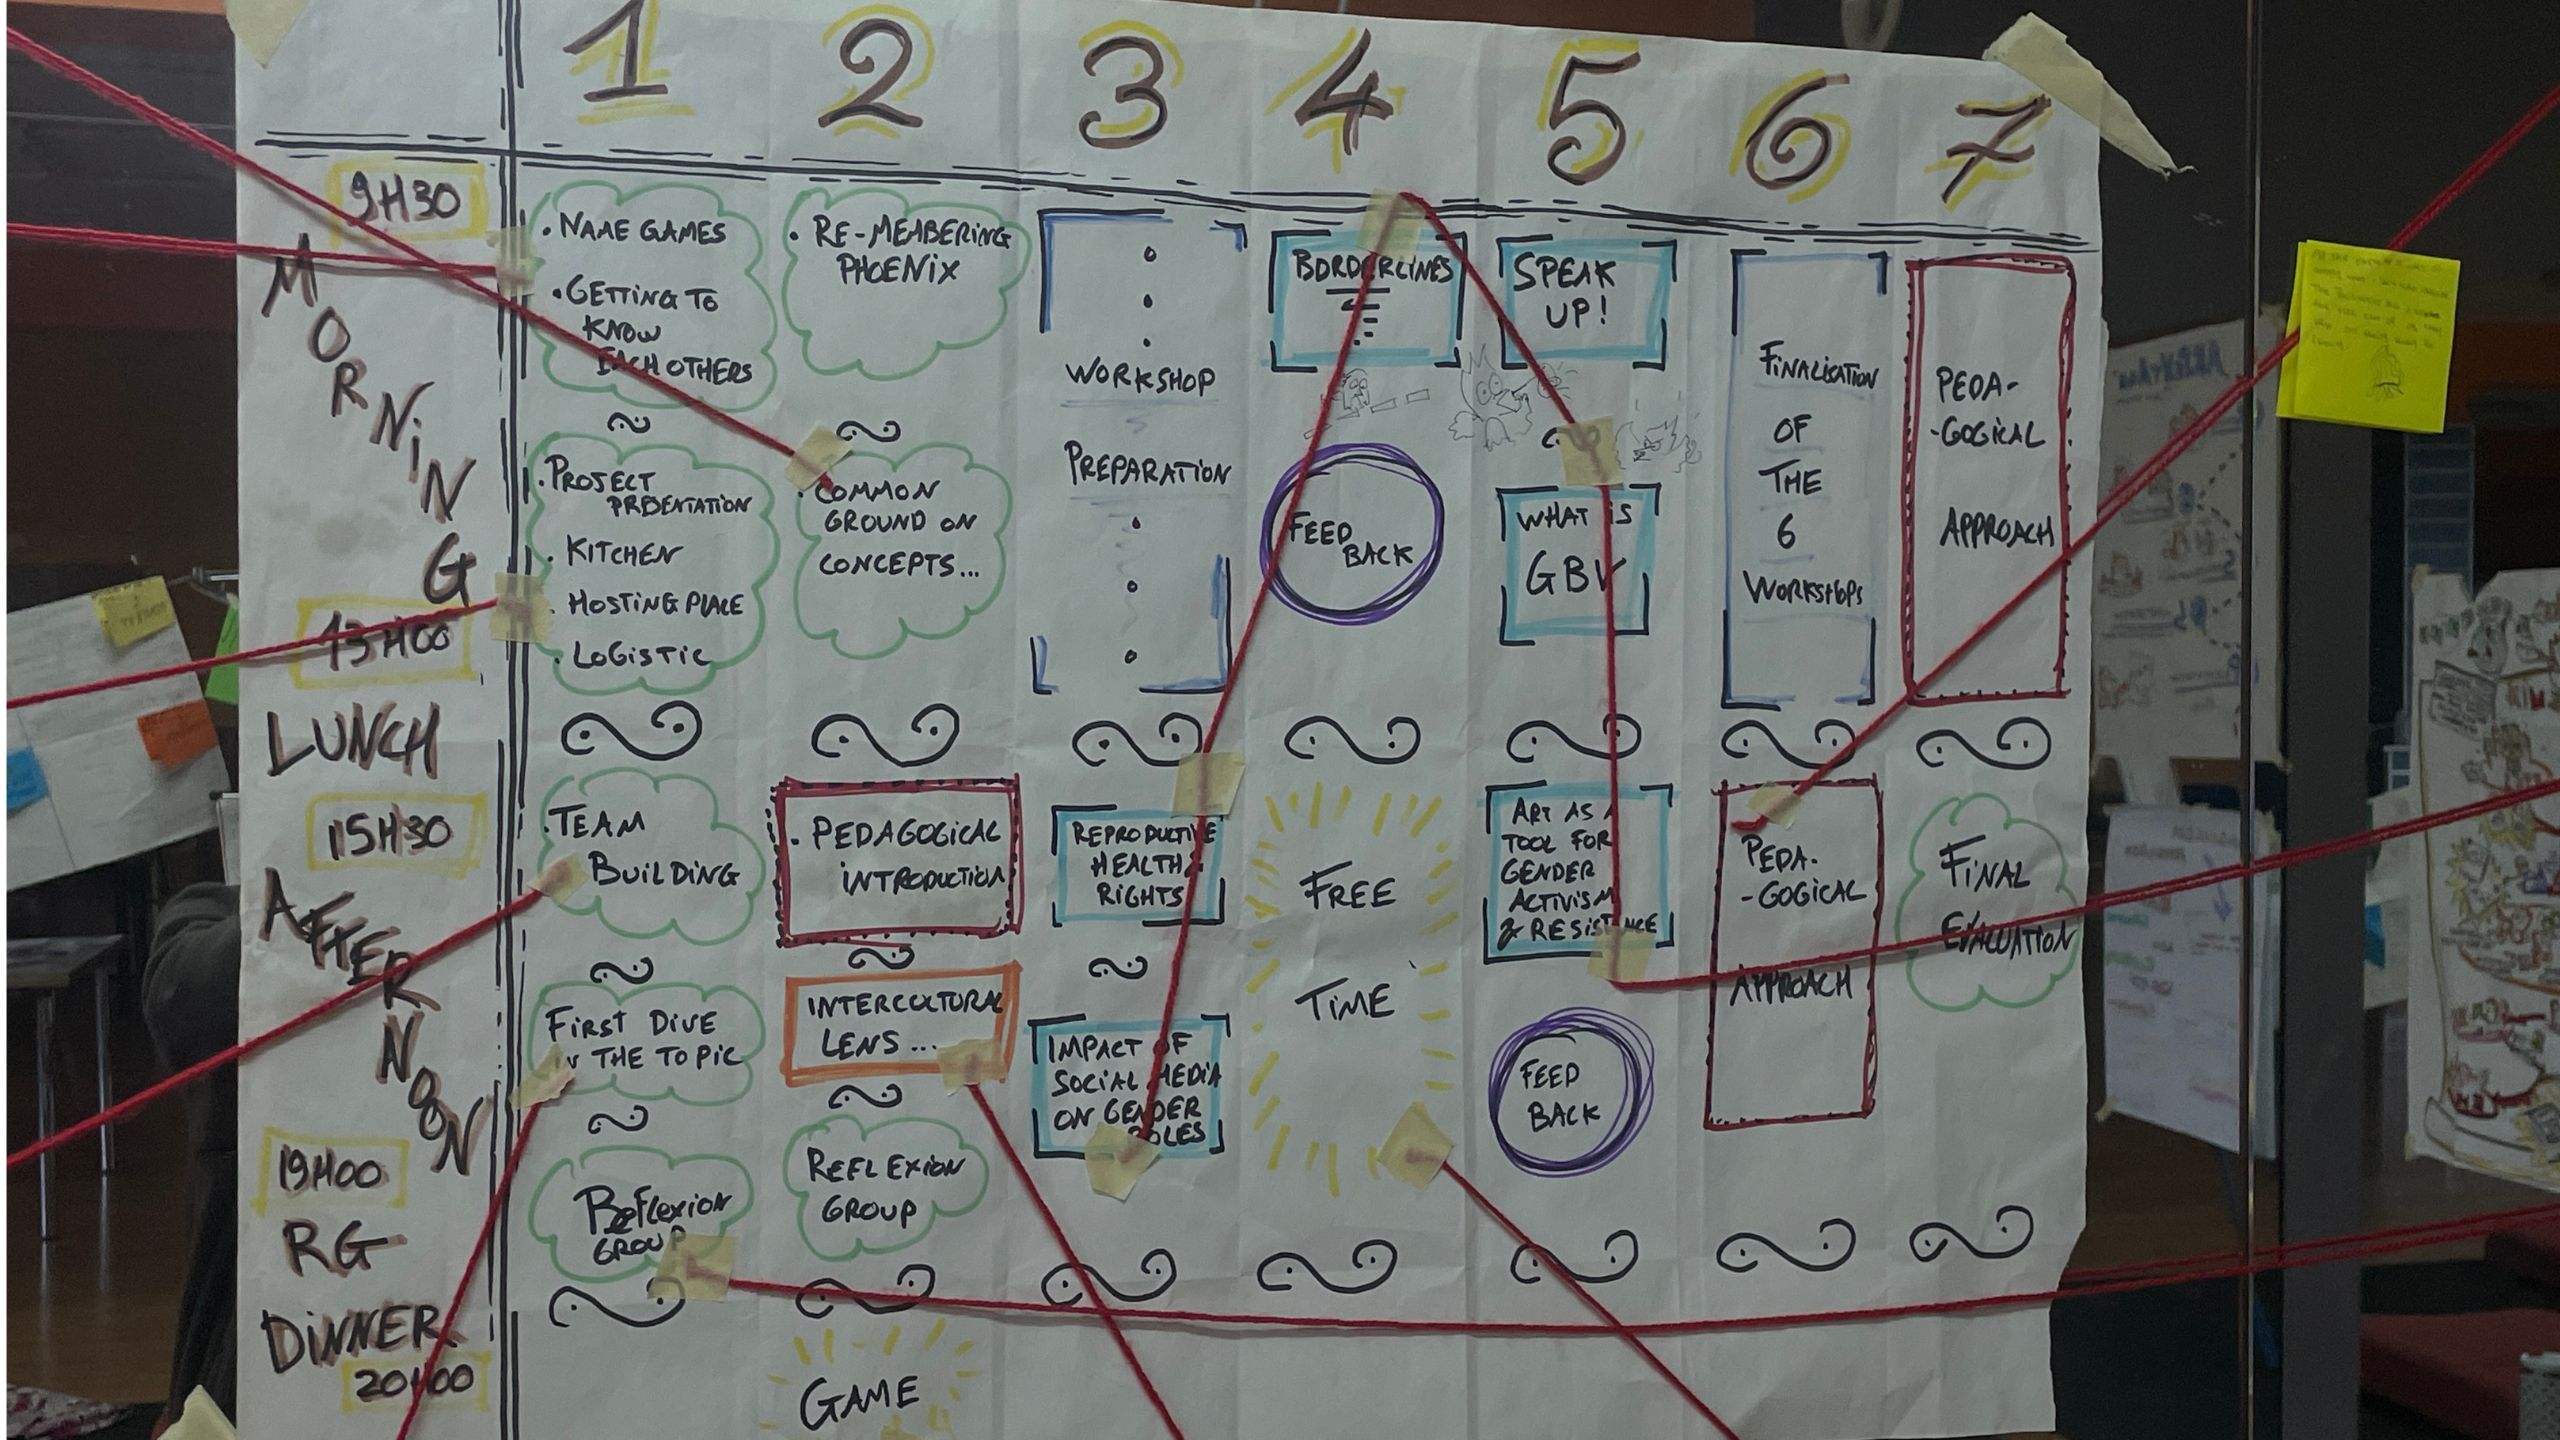 1 2 3 4 5 6 7
9H30
MORNING
13H00
LUNCH
15H30
AFTERNOON
19H00
RG
DINNER
20H00
. NAME GAMES
. GETTING TO
KNOW
EACH OTHERS
. PROJECT
PRESENTATION
. KITCHEN
. HOSTING PLACE
. LOGISTIC
. TEAM
BUILDING
FIRST DIVE
IN THE TOPIC
REFLEXION
GROUP
. RE-MEMBERING
PHOENIX
. COMMON
GROUND ON
CONCEPTS...
. PEDAGOGICAL
INTRODUCTION
INTERCULTURAL
LENS...
REFLEXION
GROUP
GAME
WORKSHOP
PREPARATION
REPRODUCTIVE
HEALTH &
RIGHTS
IMPACT OF
SOCIAL MEDIA
ON GENDER
ROLES
BORDERLINES
FEED
BACK
FREE
TIME
SPEAK
UP!
WHAT IS
GBV
ART AS A
TOOL FOR
GENDER
ACTIVISM
& RESISTANCE
FEED
BACK
FINALISATION
OF
THE
6
WORKSHOPS
PEDA-
-GOGICAL
APPROACH
PEDA-
-GOGICAL
APPROACH
FINAL
EVALUATION